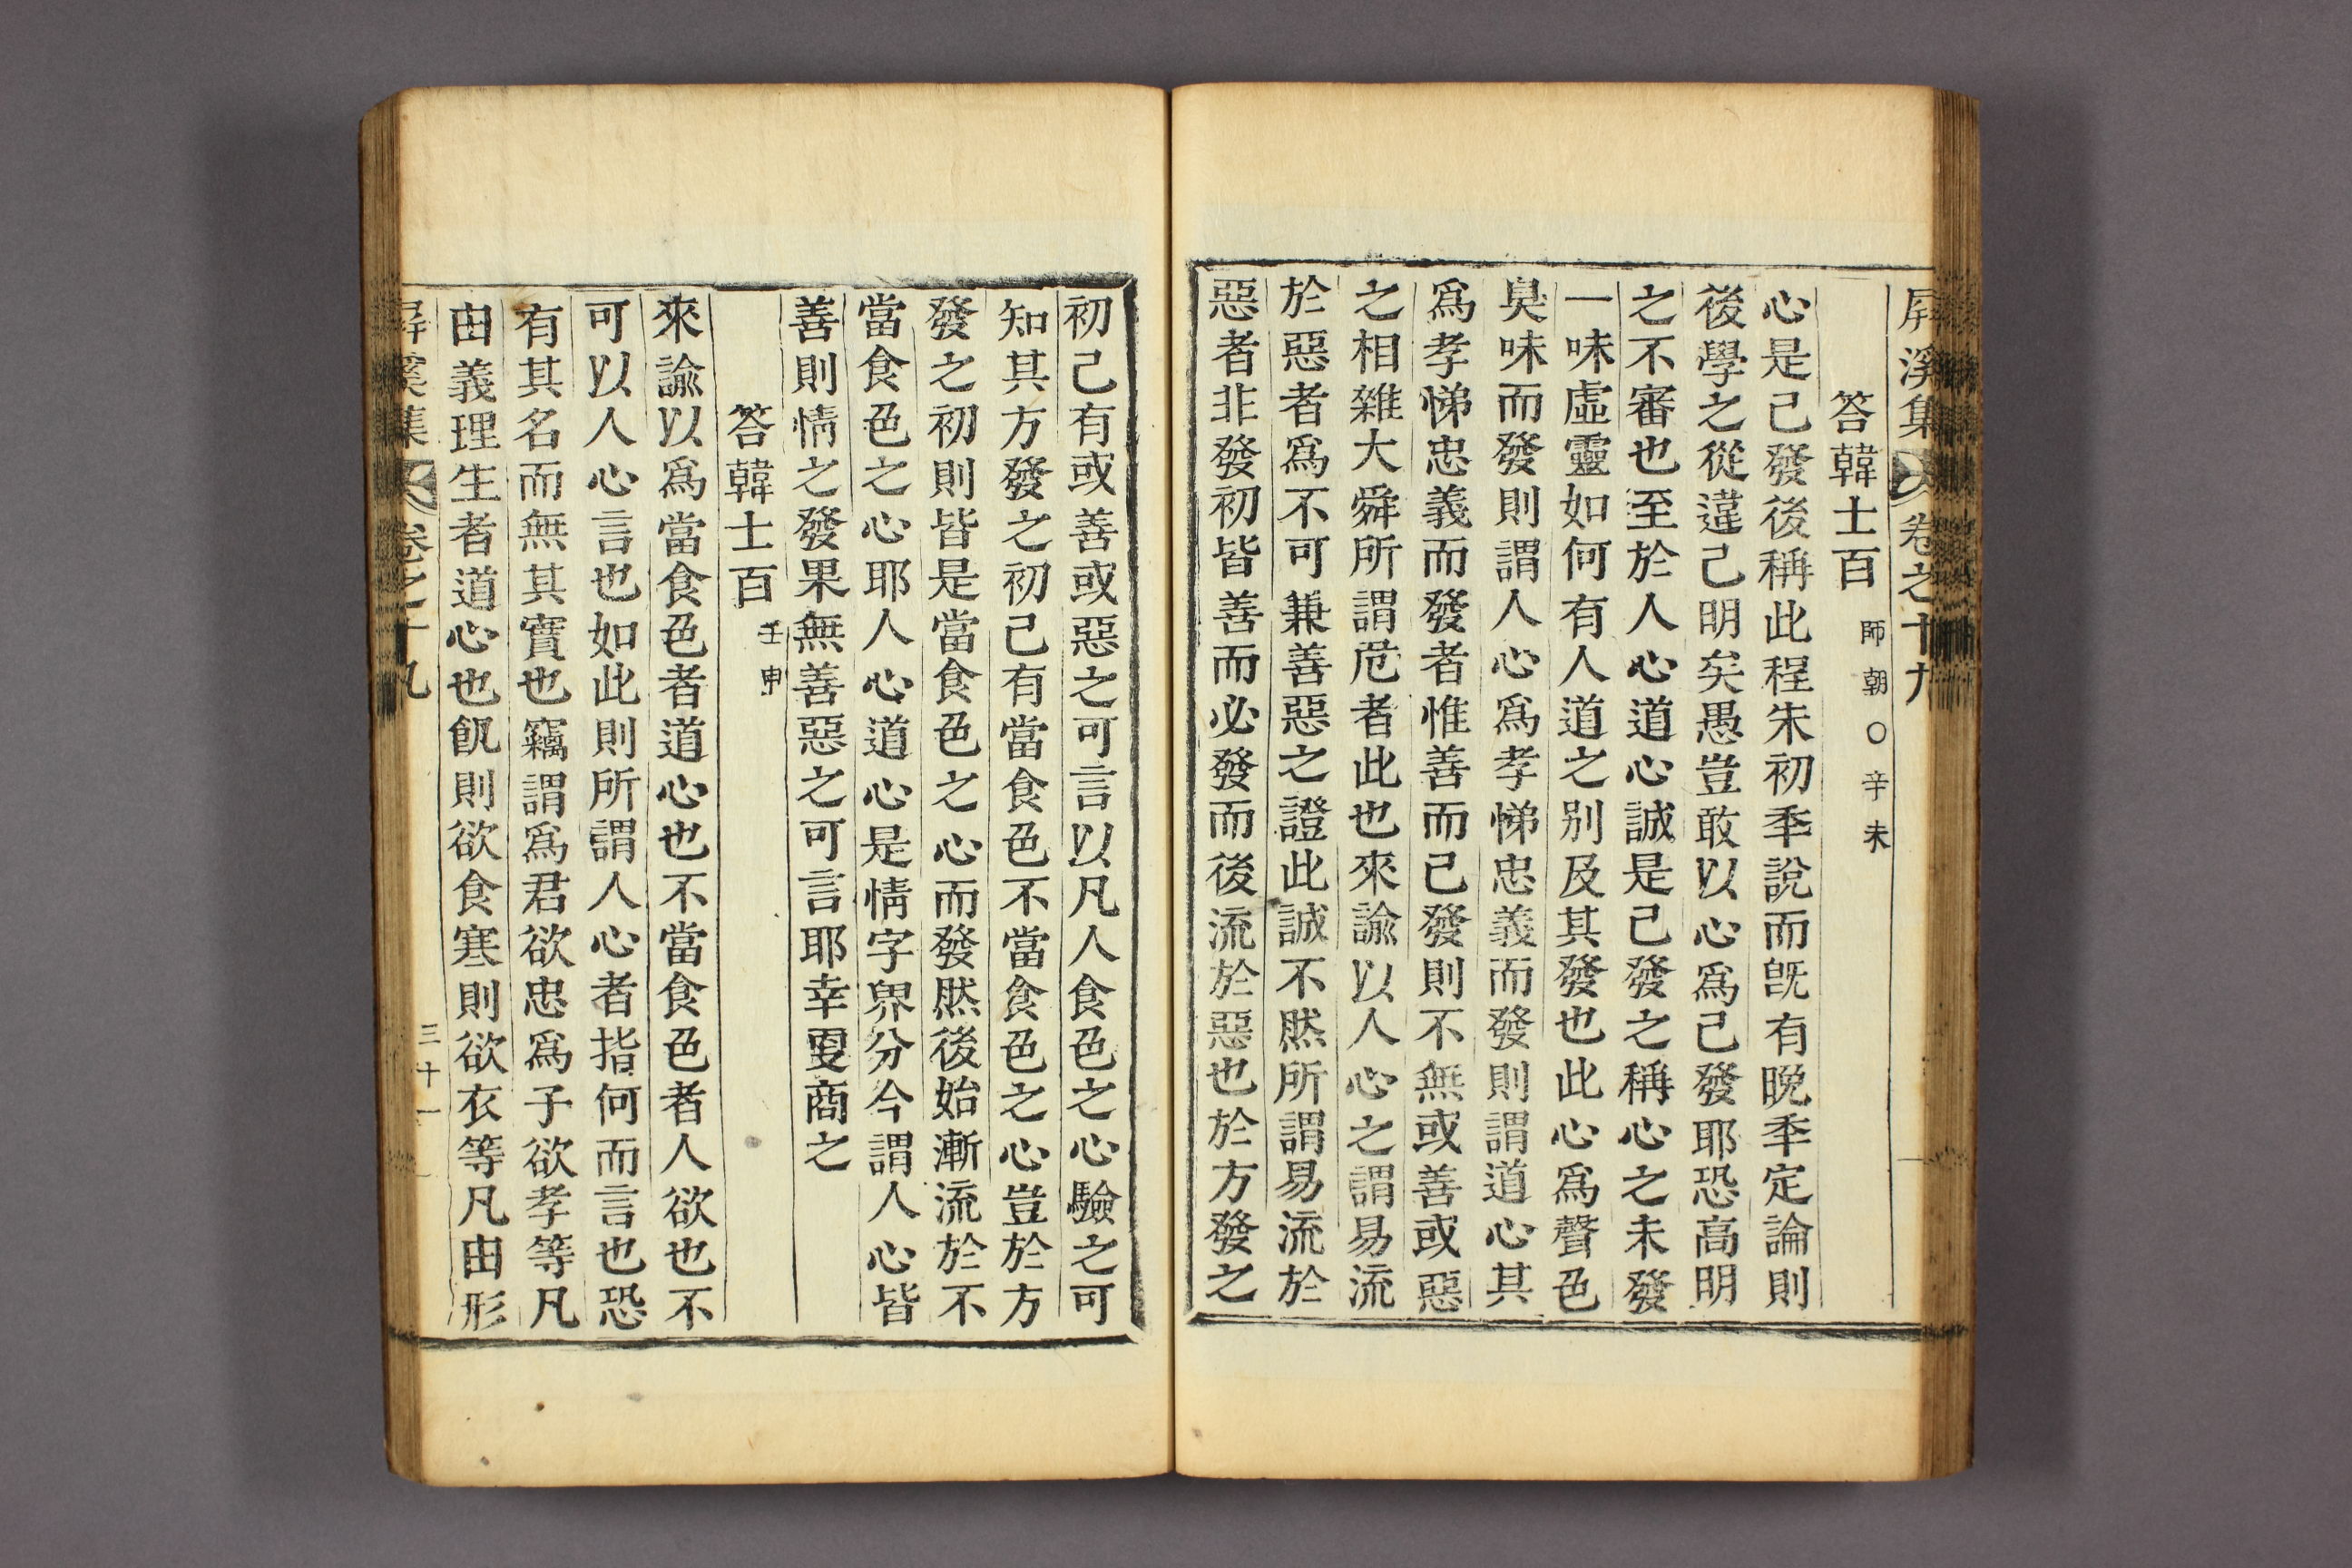 屛溪集 卷之十九
答韓士百 師朝○辛未
心是己發後稱此程朱初秊說而旣有晩秊定論則
後學之從違己明矣愚豈敢以心爲己發耶恐高明
之不審也至於人心道心誠是己發之稱心之未發
一味虛靈如何有人道之別及其發也此心爲聲色
臭味而發則謂人心爲孝悌忠義而發則謂道心其
爲孝悌忠義而發者惟善而已發則不無或善或惡
之相雜大舜所謂危者此也來諭以人心之謂易流
於惡者爲不可兼善惡之證此誠不然所謂易流於
惡者非發初皆善而必發而後流於惡也於方發之
初己有或善或惡之可言以凡人食色之心驗之可
知其方發之初己有當食色不當食色之心豈於方
發之初則皆是當食色之心而發然後始漸流於不
當食色之心耶人心道心是情字界分今謂人心皆
善則情之發果無善惡之可言耶幸更商之
答韓士百 壬申
來諭以爲當食色者道心也不當食色者人欲也不
可以人心言也如此則所謂人心者指何而言也恐
有其名而無其實也竊謂爲君欲忠爲子欲孝等凡
由義理生者道心也飢則欲食寒則欲衣等凡由形
屛溪集 卷之十九 三十一